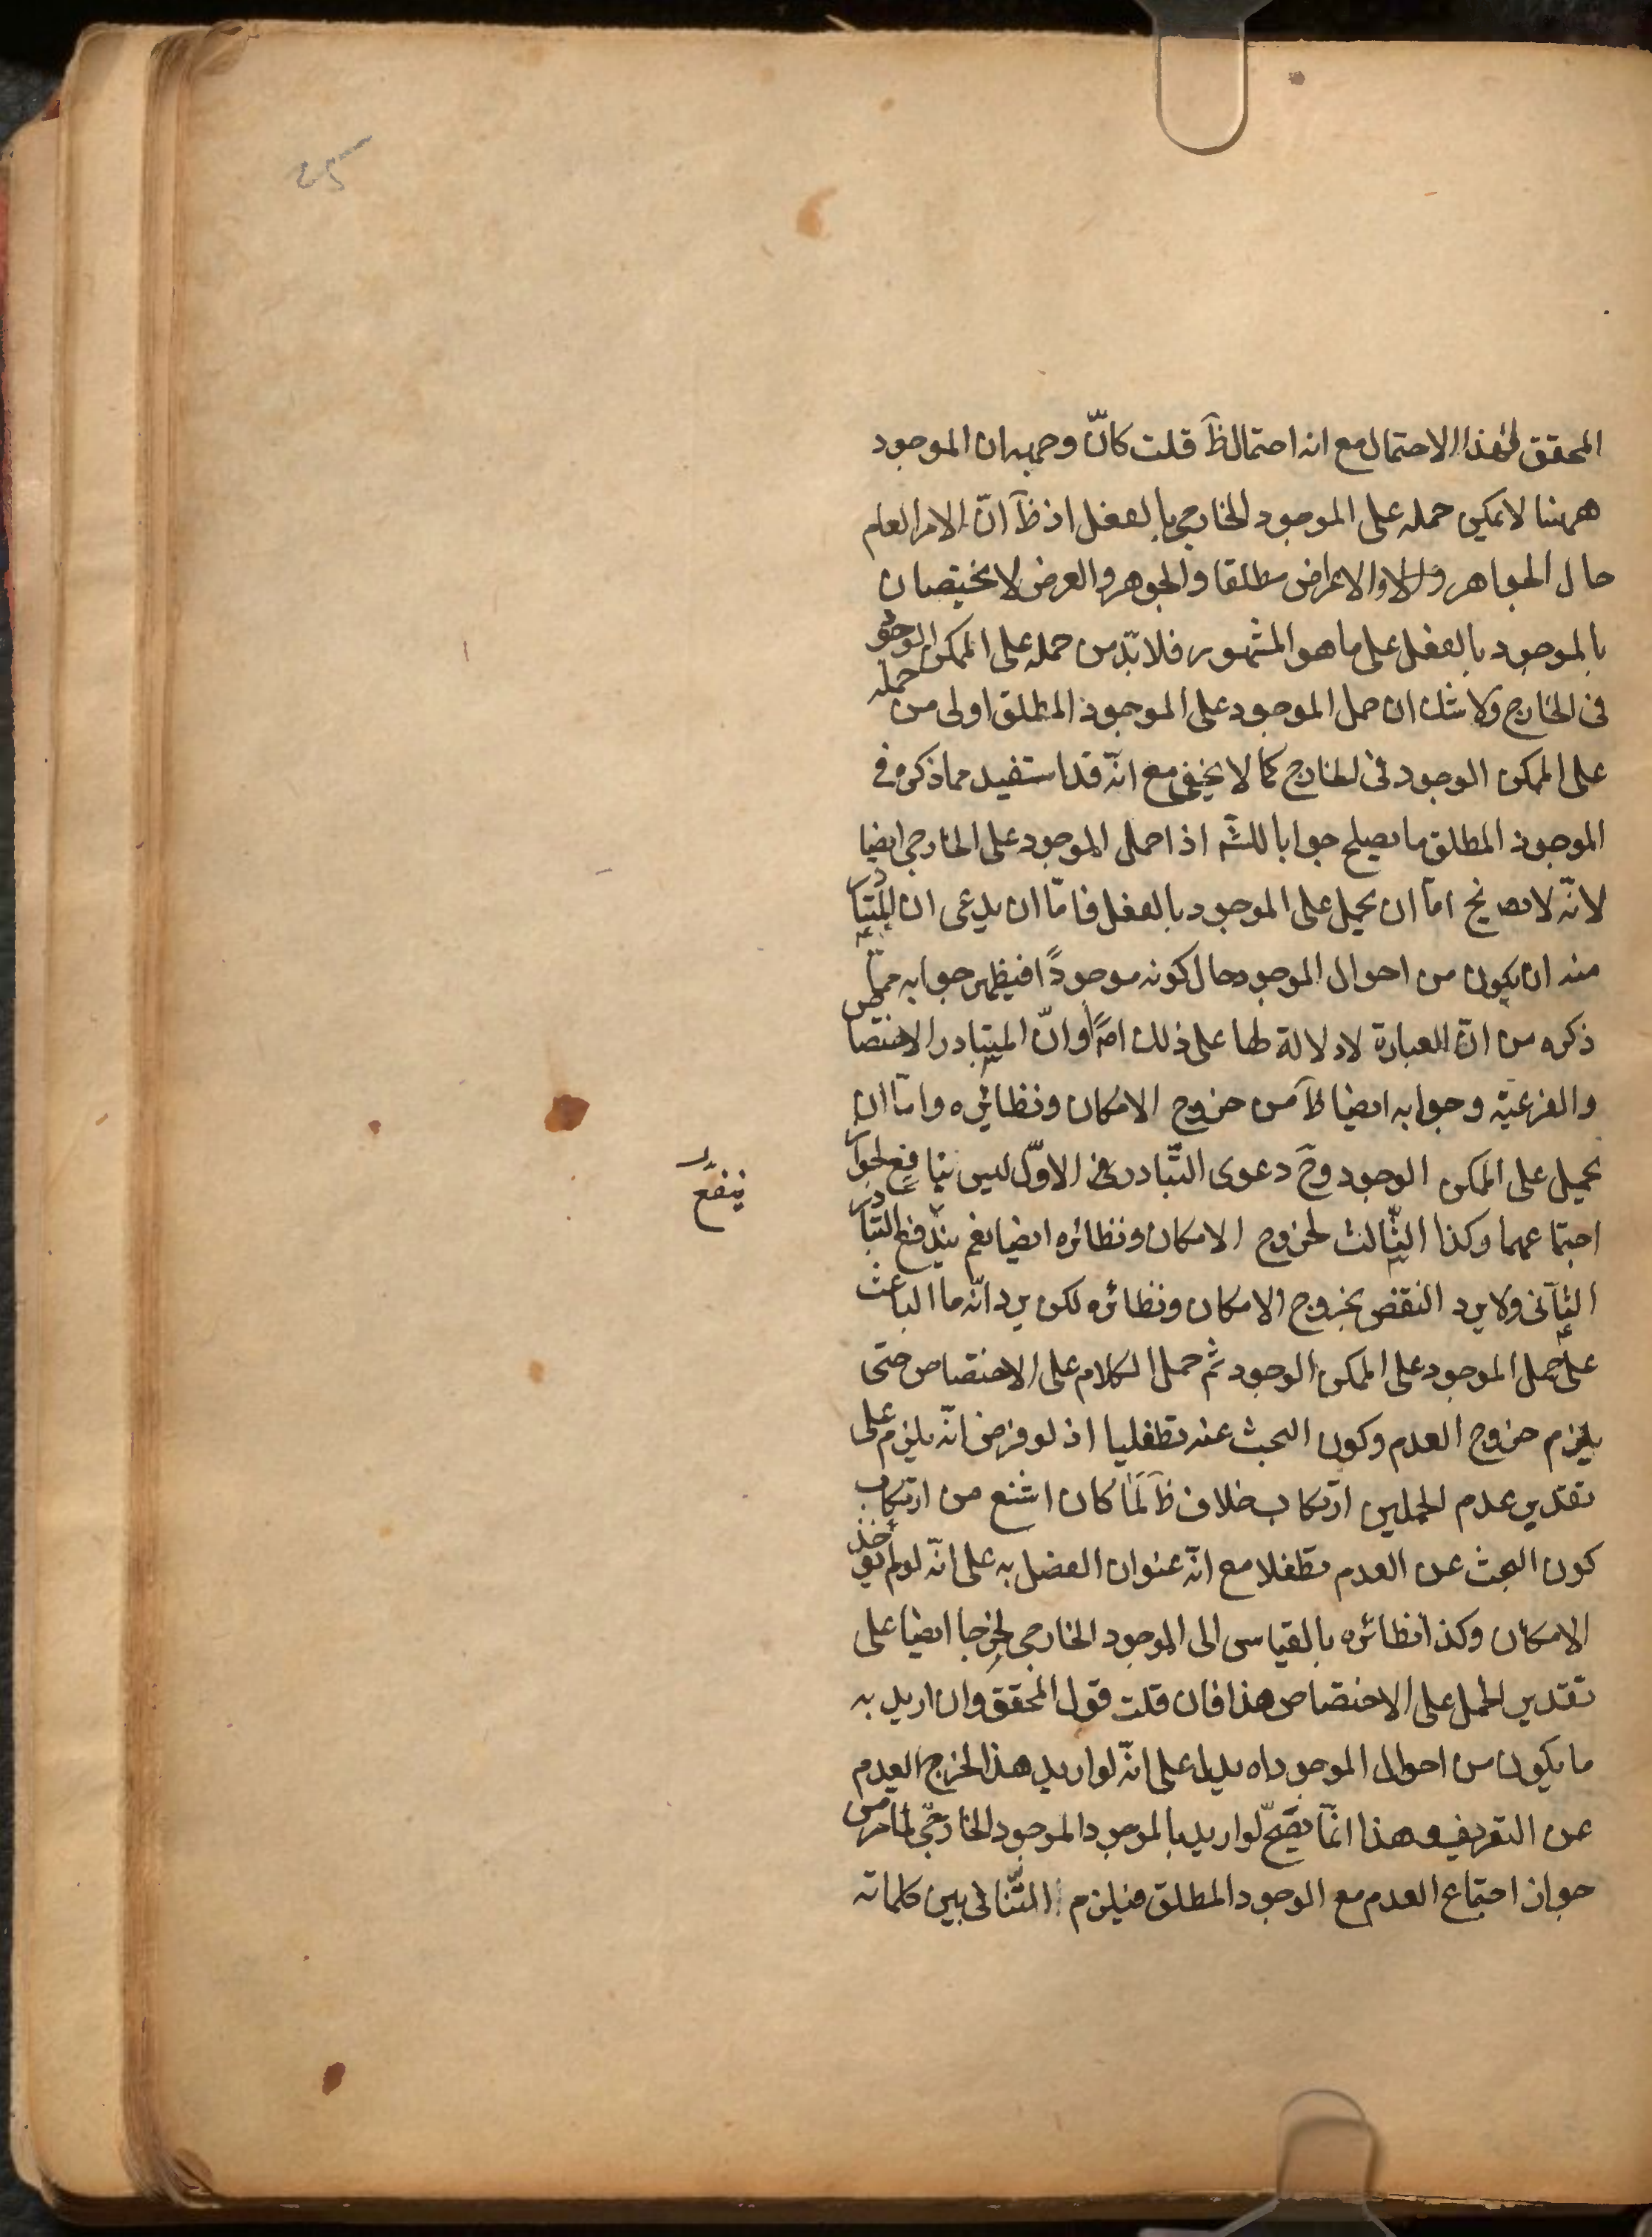 ٢٥
المحقق لهذا الاحتمال مع انه احتمال ظآ قلت كانّ وجهه ان الموجود
ههنا لا يمكن حمله على الموجود الخارجي بالفعل اذ ظآ انّ الامر العام
حال الجواهر والاعراض مطلقا والجوهر والعرض لا يختصان
بالموجود بالفعل على ما هو المشهور فلا بدّ من حمله على الممكن الوجود
فى الخارج ولا شك ان حمل الموجود على الموجود المطلق اولى من حمله
على الممكن الوجود فى الخارج كما لا يخفى مع انّه قد استفيد مما ذكره فى
الموجود المطلق ما يصلح جوابا للشّه اذا حمل الموجود على الخارجى ايضا
لانّه لا يصـ نح امّا ان يحمل على الموجود بالفعل فامّا ان يدعى ان المتبادر
منه ان يكون من احوال الموجود حال كونه موجودًا فيظهر جوابه ممّا
ذكره من انّ العبارة لا دلالة لها على ذلك اصلًا وانّ المتبادر الاختصاص
والفرعيّة وجوابه ايضا ظآ من خروج الامكان ونظائره وامّا ان
يحمل على الممكن الوجود وحٓ دعوى التّبادر فى الاوّل ليس بنافع لجواز
ينفع
اجتماعهما وكذا الثّالث لخروج الامكان ونظائره ايضا نعم يندفع التبادر
الثّانى ولا يرد النقض بخروج الامكان ونظائره لكن يرد انّه ما الباعث
على حمل الموجود على الممكن الوجود ثم حمل الكلام على الاختصاص حتى
يلزم خروج العدم وكون البحث عنه تطفليا اذ لو فرض انّه يلزم على
تقدير عدم الحملين ارتكاب خلاف ظآ لَمَا كان اشنع من ارتكاب
كون البحث عن العدم تطفلا مع انّه عنوان الفصل به على انّه لو لم يؤخذ
الامكان وكذا نظائره بالقياس الى الموجود الخارجى لخرجا ايضا على
تقدير الحمل على الاختصاص هذا فان قلت قول المحقق وان اريد به
ما يكون من احوال الموجود اه يدل على انّه لو اريد هذا لخرج العدم
عن التعريف وهذا انّما يصّح لو اريد بالموجود الموجود الخارجىّ لما مر من
جواز اجتماع العدم مع الوجود المطلق فيلزم التّنافى بين كلماته